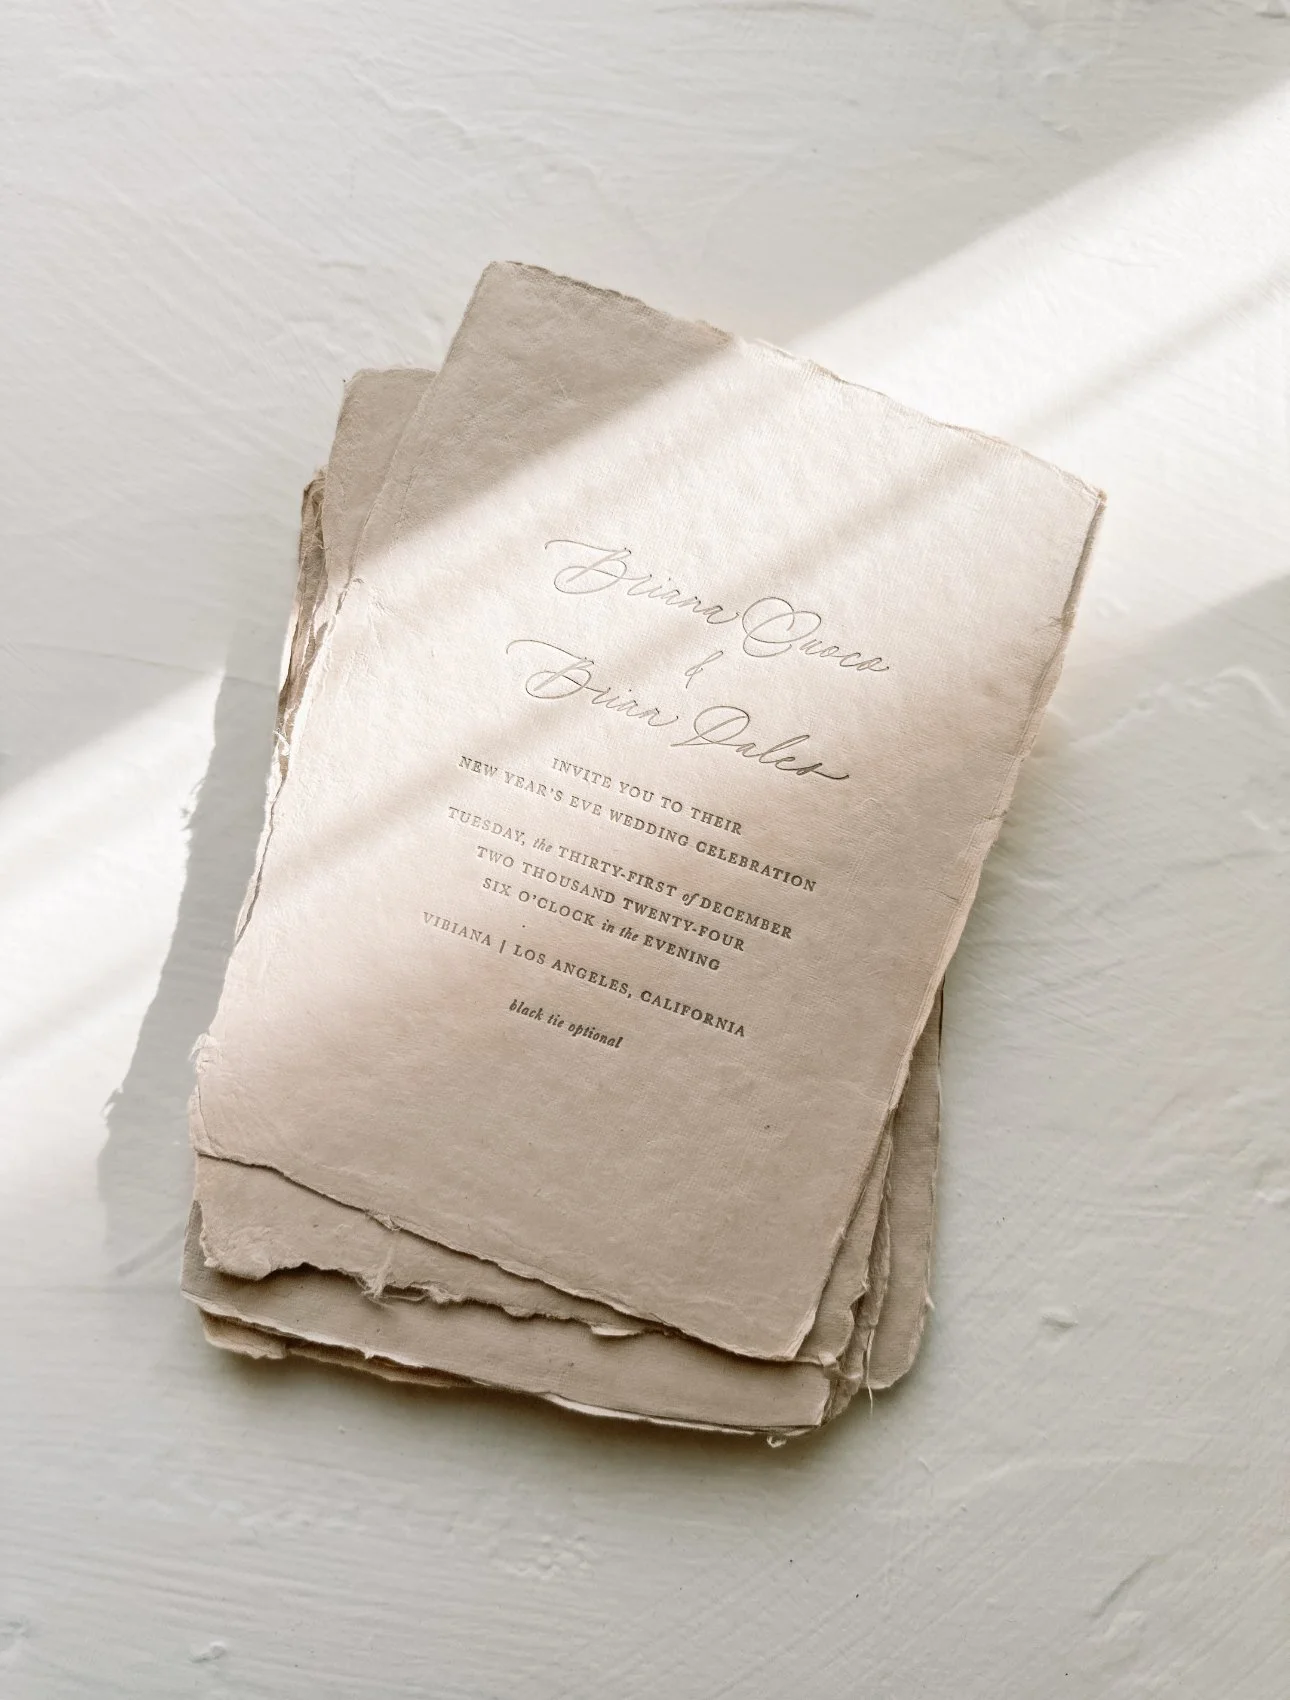 Briana Cuoco
&
Brian Dales
INVITE YOU TO THEIR
NEW YEAR'S EVE WEDDING CELEBRATION
TUESDAY, the THIRTY-FIRST of DECEMBER
TWO THOUSAND TWENTY-FOUR
SIX O'CLOCK in the EVENING
VIBIANA | LOS ANGELES, CALIFORNIA
black tie optional